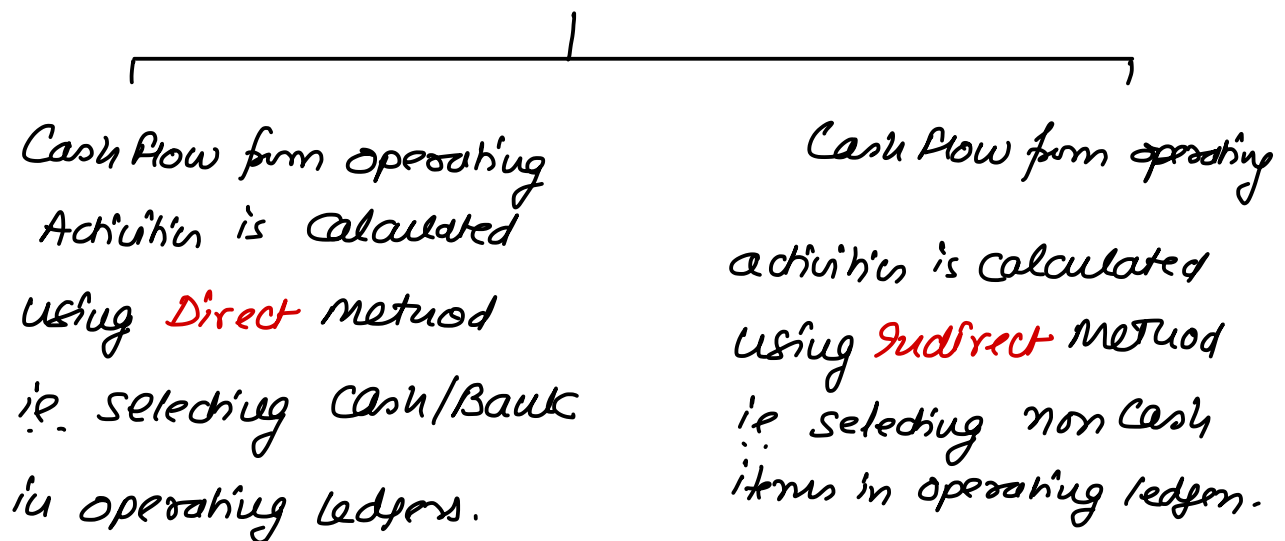 Cash flow from operating
Activities is calculated
using Direct Method
i.e. selecting Cash/Bank
in operating ledgers.
Cash flow from operating
activities is calculated
using Indirect Method
i.e. selecting non cash
items in operating ledgers.